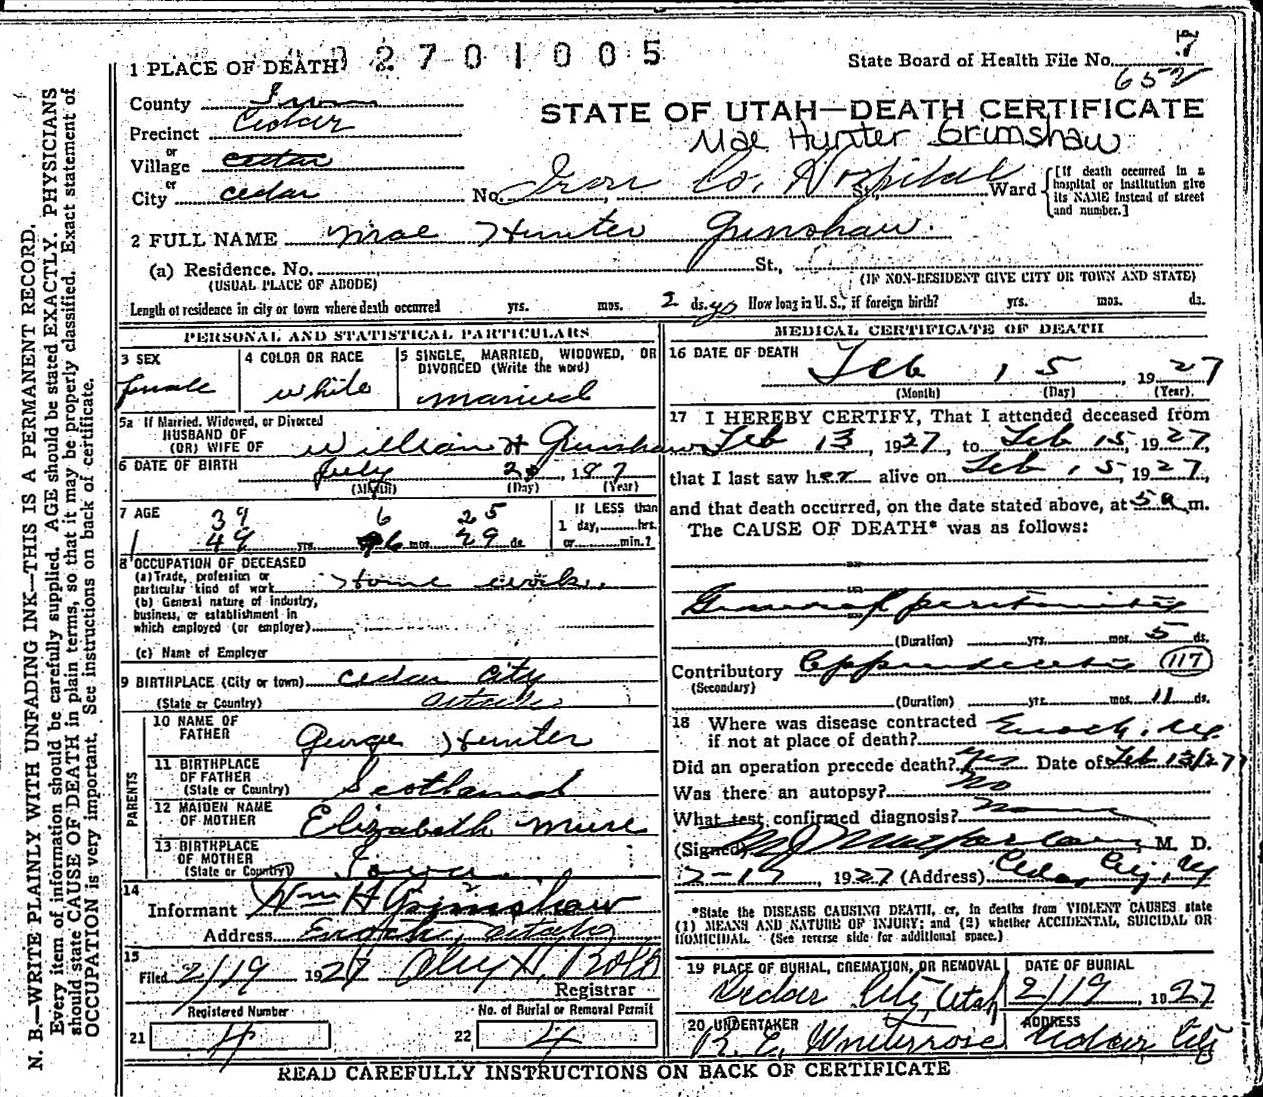 N. B.—WRITE PLAINLY WITH UNFADING INK—THIS IS A PERMANENT RECORD.
Every item of information should be carefully supplied. AGE should be stated EXACTLY. PHYSICIANS
should state CAUSE OF DEATH in plain terms, so that it may be properly classified. Exact statement of
OCCUPATION is very important. See instructions on back of certificate.
2701005
State Board of Health File No. 7
652
1 PLACE OF DEATH
County Iron
STATE OF UTAH—DEATH CERTIFICATE
Precinct Cedar
Mae Hunter Grimshaw
or
Village cedar
or
City cedar No. Iron Co. Hospital St., Ward
[If death occurred in a
hospital or institution give
its NAME instead of street
and number.]
2 FULL NAME Mae Hunter Grimshaw.
(a) Residence. No. St.,
(USUAL PLACE OF ABODE) (IF NON-RESIDENT GIVE CITY OR TOWN AND STATE)
Length of residence in city or town where death occurred yrs. mos. 2 ds. How long in U. S., if foreign birth? yrs. mos. ds.
PERSONAL AND STATISTICAL PARTICULARS
3 SEX 4 COLOR OR RACE 5 SINGLE, MARRIED, WIDOWED, OR
DIVORCED (Write the word)
female white married
5a If Married, Widowed, or Divorced
HUSBAND OF
(OR) WIFE OF William H Grimshaw
6 DATE OF BIRTH July 20, 1887
(Month) (Day) (Year)
7 AGE 39 6 25
49 yrs. 6 mos. 29 ds.
If LESS than
1 day, hrs.
or min.?
8 OCCUPATION OF DECEASED
(a) Trade, profession or
particular kind of work Home work.
(b) General nature of industry,
business, or establishment in
which employed (or employer)
(c) Name of Employer
9 BIRTHPLACE (City or town) Cedar City
(State or Country)
PARENTS
10 NAME OF
FATHER George Hunter
11 BIRTHPLACE
OF FATHER
(State or Country) Scotland
12 MAIDEN NAME
OF MOTHER Elizabeth Muse
13 BIRTHPLACE
OF MOTHER
(State or Country) Iowa
14
Informant Wm H Grimshaw
Address Enoch, Utah
15
Filed 2/19 1927
Registrar
Registered Number No. of Burial or Removal Permit
21 4 22 4
MEDICAL CERTIFICATE OF DEATH
16 DATE OF DEATH
Feb 15, 1927
(Month) (Day) (Year)
17 I HEREBY CERTIFY, That I attended deceased from
Feb 13, 1927, to Feb 15, 1927,
that I last saw her alive on Feb 15, 1927,
and that death occurred, on the date stated above, at 5 a m.
The CAUSE OF DEATH* was as follows:
General peritonitis
(Duration) yrs. mos. 5 ds.
Contributory Appendicitis 117
(Secondary)
(Duration) yrs. mos. 11 ds.
18 Where was disease contracted
if not at place of death? Enoch, Ut
Did an operation precede death? Yes Date of Feb 13/27
Was there an autopsy? No
What test confirmed diagnosis? None
(Signed) M J Macfarlane, M. D.
2-17, 1927 (Address) Cedar City, Ut
*State the DISEASE CAUSING DEATH, or, in deaths from VIOLENT CAUSES, state
(1) MEANS AND NATURE OF INJURY; and (2) whether ACCIDENTAL, SUICIDAL OR
HOMICIDAL. (See reverse side for additional space.)
19 PLACE OF BURIAL, CREMATION, OR REMOVAL DATE OF BURIAL
Cedar City, Utah 2/19, 1927
20 UNDERTAKER ADDRESS
Cedar City
READ CAREFULLY INSTRUCTIONS ON BACK OF CERTIFICATE